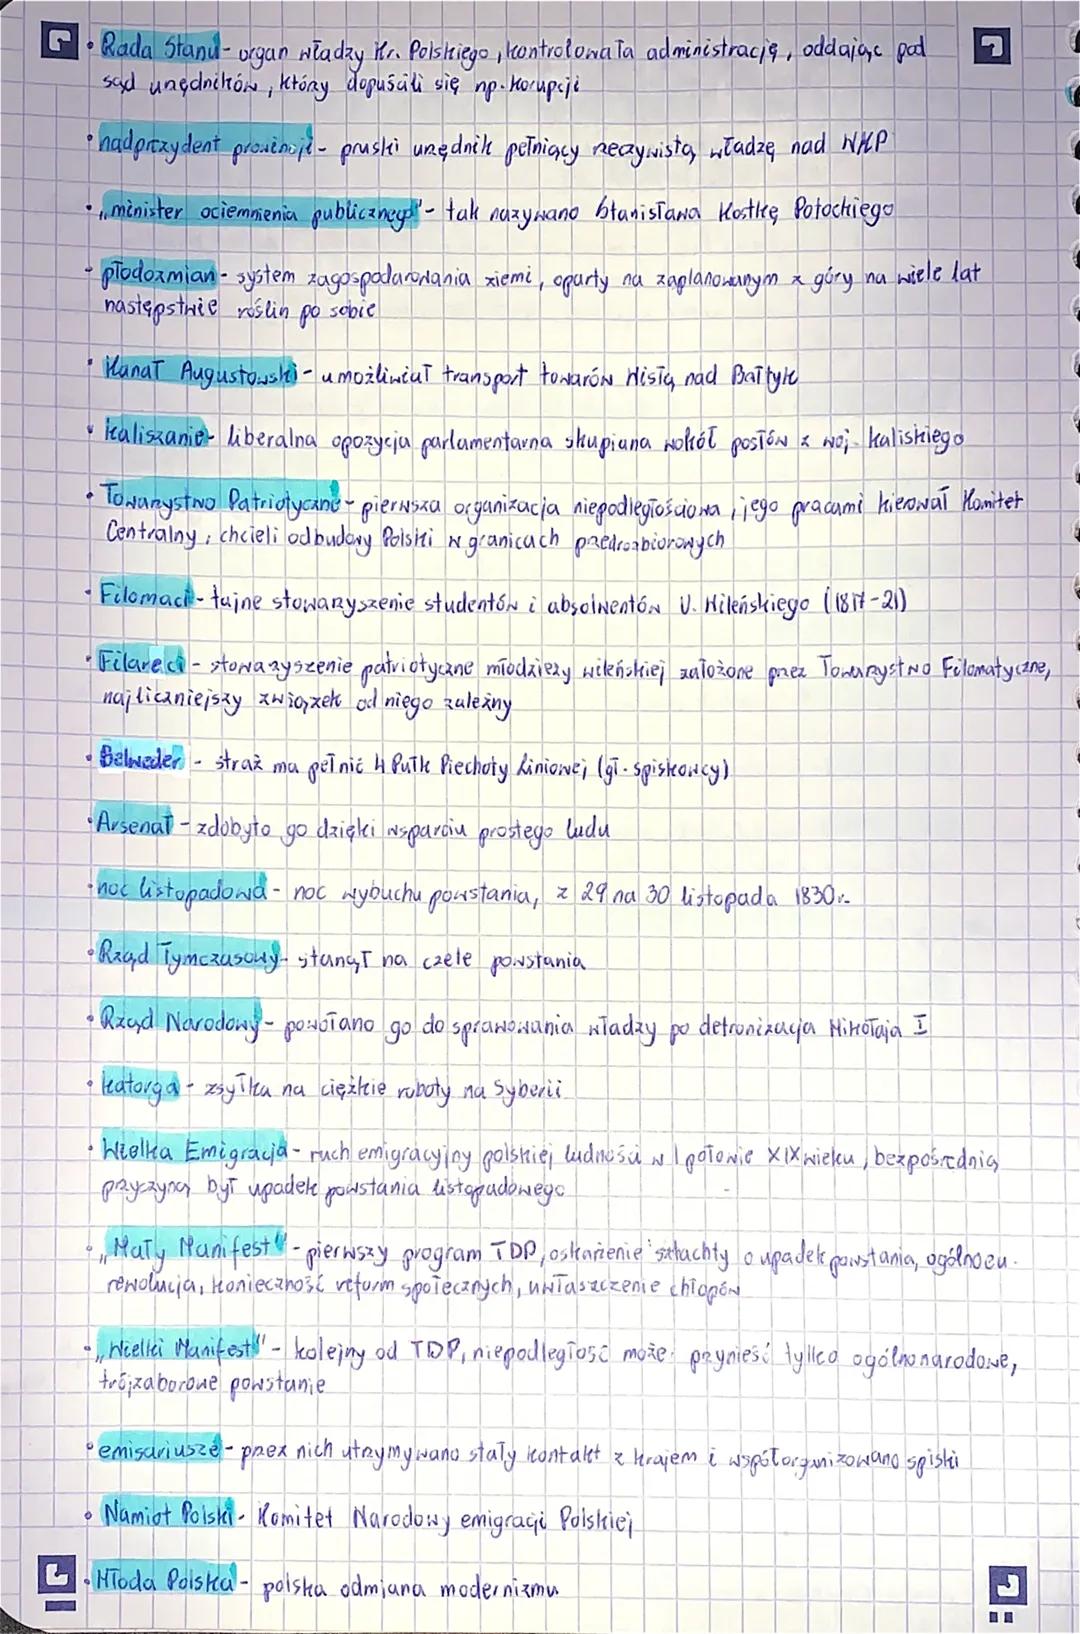 • Rada Stanu - organ władzy Kr. Polskiego, kontrolowała administrację, oddając pod
sąd urzędników, którzy dopuścili się np. korupcji
• nadprezydent prowincji - pruski urzędnik pełniący rzeczywistą władzę nad WKP
• „minister ociemnienia publicznego" - tak nazywano Stanisława Kostkę Potockiego
• płodozmian - system zagospodarowania ziemi, oparty na zaplanowanym z góry na wiele lat
następstwie roślin po sobie
• Kanał Augustowski - umożliwiał transport towarów Wisłą nad Bałtyk
• kaliszanie - liberalna opozycja parlamentarna skupiana wokół posłów z woj. kaliskiego
• Towarzystwo Patriotyczne - pierwsza organizacja niepodległościowa, jego pracami kierował Komitet
Centralny, chcieli odbudowy Polski w granicach przedrozbiorowych
• Filomaci - tajne stowarzyszenie studentów i absolwentów U. Wileńskiego (1817-21)
• Filareci - stowarzyszenie patriotyczne młodzieży wileńskiej założone przez Towarzystwo Filomatyczne,
najliczniejszy związek od niego zależny
• Belweder - straż ma pełnić 4 Pułk Piechoty Liniowej (gł. spiskowcy)
• Arsenał - zdobyto go dzięki wsparciu prostego ludu
• noc listopadowa - noc wybuchu powstania, z 29 na 30 listopada 1830r.
• Rząd Tymczasowy - stanął na czele powstania
• Rząd Narodowy - powołano go do sprawowania władzy po detronizacja Mikołaja I
• katorga - zsyłka na ciężkie roboty na Syberii
• Wielka Emigracja - ruch emigracyjny polskiej ludności w I połowie XIX wieku, bezpośrednią
przyczyną był upadek powstania listopadowego
• „Mały Manifest" - pierwszy program TDP, oskarżenie szlachty o upadek powstania, ogólnoeu.
rewolucja, konieczność reform społecznych, uwłaszczenie chłopów
• „Wielki Manifest" - kolejny od TDP, niepodległość może przynieść tylko ogólnonarodowe,
trójzaborowe powstanie
• emisariusze - przez nich utrzymywano stały kontakt z krajem i współorganizowano spiski
• Namiot Polski - Komitet Narodowy emigracji Polskiej
• Młoda Polska - polska odmiana modernizmu